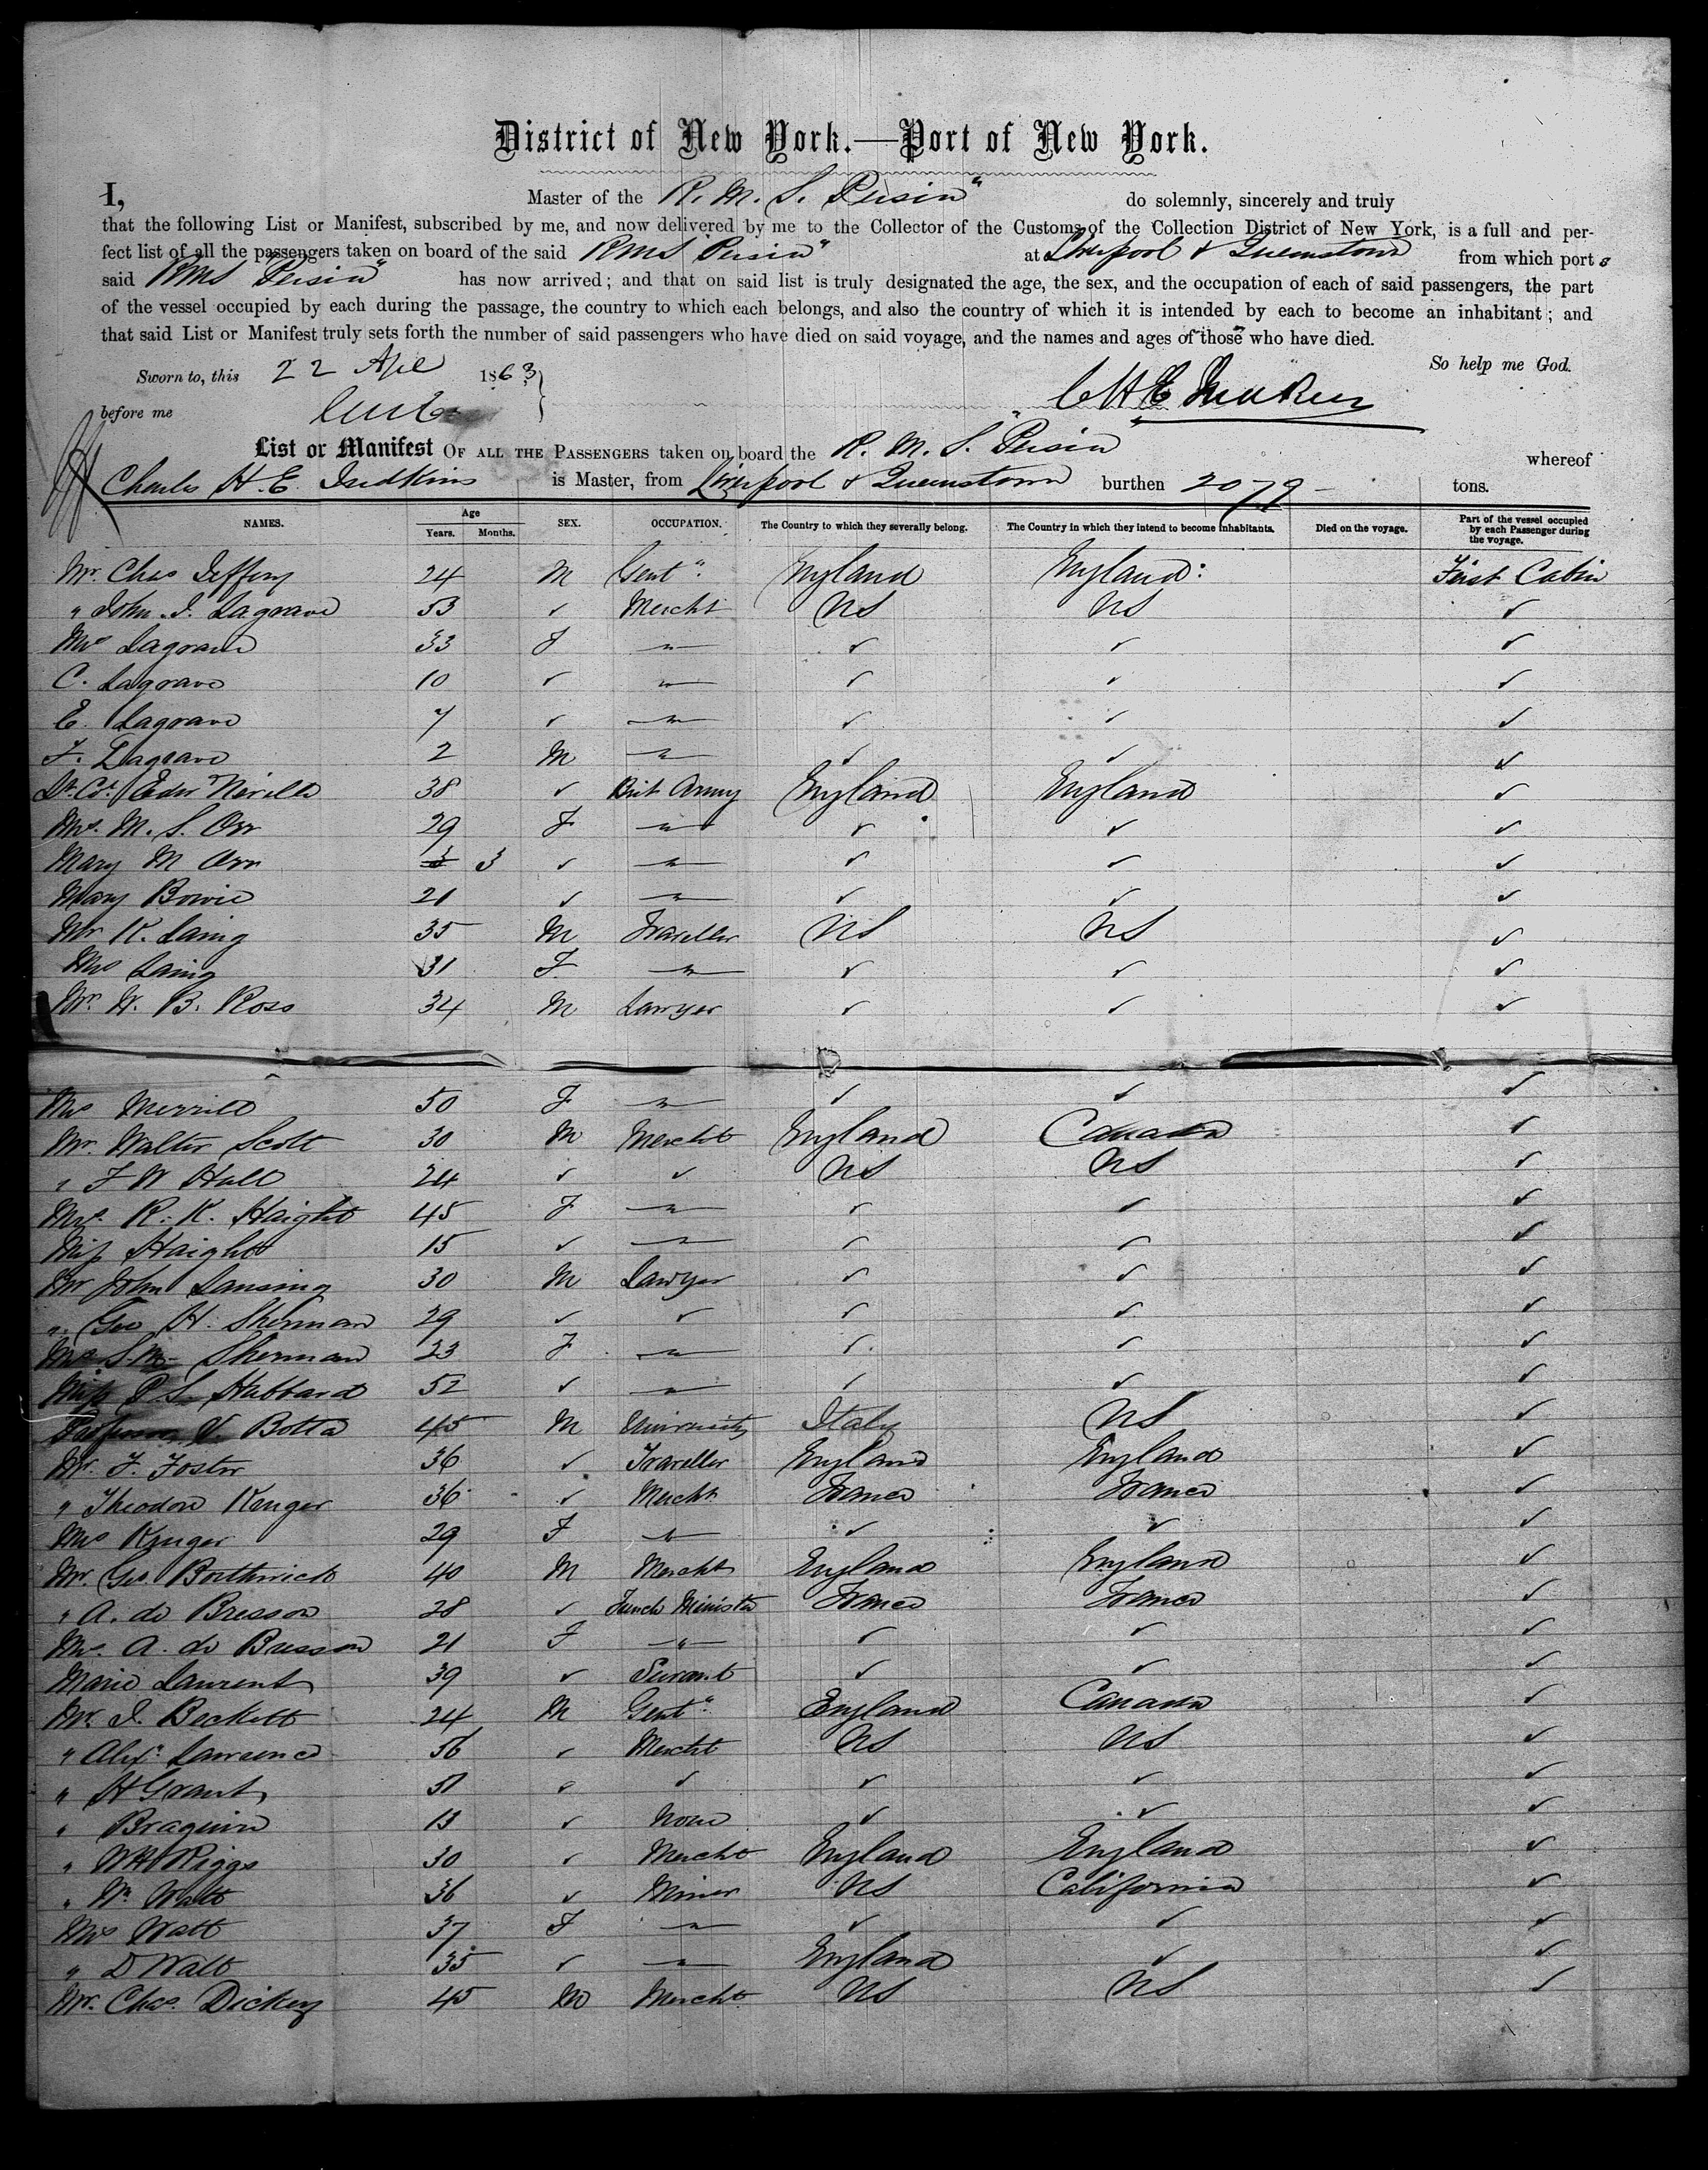 District of New York.—Port of New York.
I, Master of the R. M. S. Persia" do solemnly, sincerely and truly
that the following List or Manifest, subscribed by me, and now delivered by me to the Collector of the Customs of the Collection District of New York, is a full and per-
fect list of all the passengers taken on board of the said RMS Persia" at Liverpool & Queenstown from which port s
said RMS "Persia" has now arrived; and that on said list is truly designated the age, the sex, and the occupation of each of said passengers, the part
of the vessel occupied by each during the passage, the country to which each belongs, and also the country of which it is intended by each to become an inhabitant; and
that said List or Manifest truly sets forth the number of said passengers who have died on said voyage, and the names and ages of those who have died.
So help me God.
Sworn to, this 22 Apl 1863
before me
CHE Judkins
List or Manifest OF ALL THE PASSENGERS taken on board the R. M. S. "Persia whereof
Charles H. E. Judkins is Master, from Liverpool & Queenstown burthen 2079 tons.
NAMES. Age Years. Months. SEX. OCCUPATION. The Country to which they severally belong. The Country in which they intend to become inhabitants. Died on the voyage. Part of the vessel occupied by each Passenger during the voyage.
Mr. Chas Jeffery 24 M Gent". England England: First Cabin
" John J. Lagrave 53 ✓ Mercht US US ✓
Mrs Lagrave 33 F " ✓ ✓ ✓
C. Lagrave 10 ✓ " ✓ ✓ ✓
E. Lagrave 7 ✓ " ✓ ✓ ✓
F. Lagrave 2 M " ✓ ✓ ✓
Lt. Col. Edw Neville 38 ✓ Brit Army England England ✓
Mrs. M. S. Orr 29 F " ✓ ✓ ✓
Mary M Orr 3 3 ✓ " ✓ ✓ ✓
Mary Bowie 21 ✓ " ✓ ✓ ✓
Mr K. Laing 35 M Traveller US US ✓
Mrs Laing 31 F " ✓ ✓ ✓
Mr. W. B. Ross 34 M Lawyer ✓ ✓ ✓
Mrs Merrill 50 F " ✓ ✓ ✓
Mr. Walter Scott 30 M Mercht England Canada ✓
" F W Hall 24 ✓ ✓ US US ✓
Mrs. R. K. Haight 45 F " ✓ ✓ ✓
Miss Haight 15 ✓ " ✓ ✓ ✓
Mr John Lansing 30 M Lawyer ✓ ✓ ✓
" Geo H. Sherman 29 ✓ ✓ ✓ ✓ ✓
Mrs S. M. Sherman 23 F " ✓ ✓ ✓
Miss P. S. Hubbard 52 ✓ " ✓ ✓ ✓
Professor V. Botta 45 M University Italy US ✓
Mr. F. Foster 36 ✓ Traveller England England ✓
" Theodore Kruger 36 ✓ Mercht France France ✓
Mrs Kruger 29 F " ✓ ✓ ✓
Mr. Geo. Borthwick 40 M Mercht England England ✓
" A. de Bresson 28 ✓ French Minister France France ✓
Mrs. A. de Bresson 21 F " ✓ ✓ ✓
Marie Laurent 39 ✓ Servant ✓ ✓ ✓
Mr. J. Beckett 24 M Gent". England Canada ✓
" Alexr. Lawrence 56 ✓ Mercht US US ✓
" H Grant 51 ✓ ✓ ✓ ✓ ✓
" Braguin 13 ✓ None ✓ ✓ ✓
" WH Riggs 30 ✓ Mercht England England ✓
" Wm Watt 36 ✓ Miner US California ✓
Mrs Watt 37 F " ✓ ✓ ✓
" D Watt 35 ✓ " England ✓ ✓
Mr. Chas. Dickey 45 M Mercht US US ✓